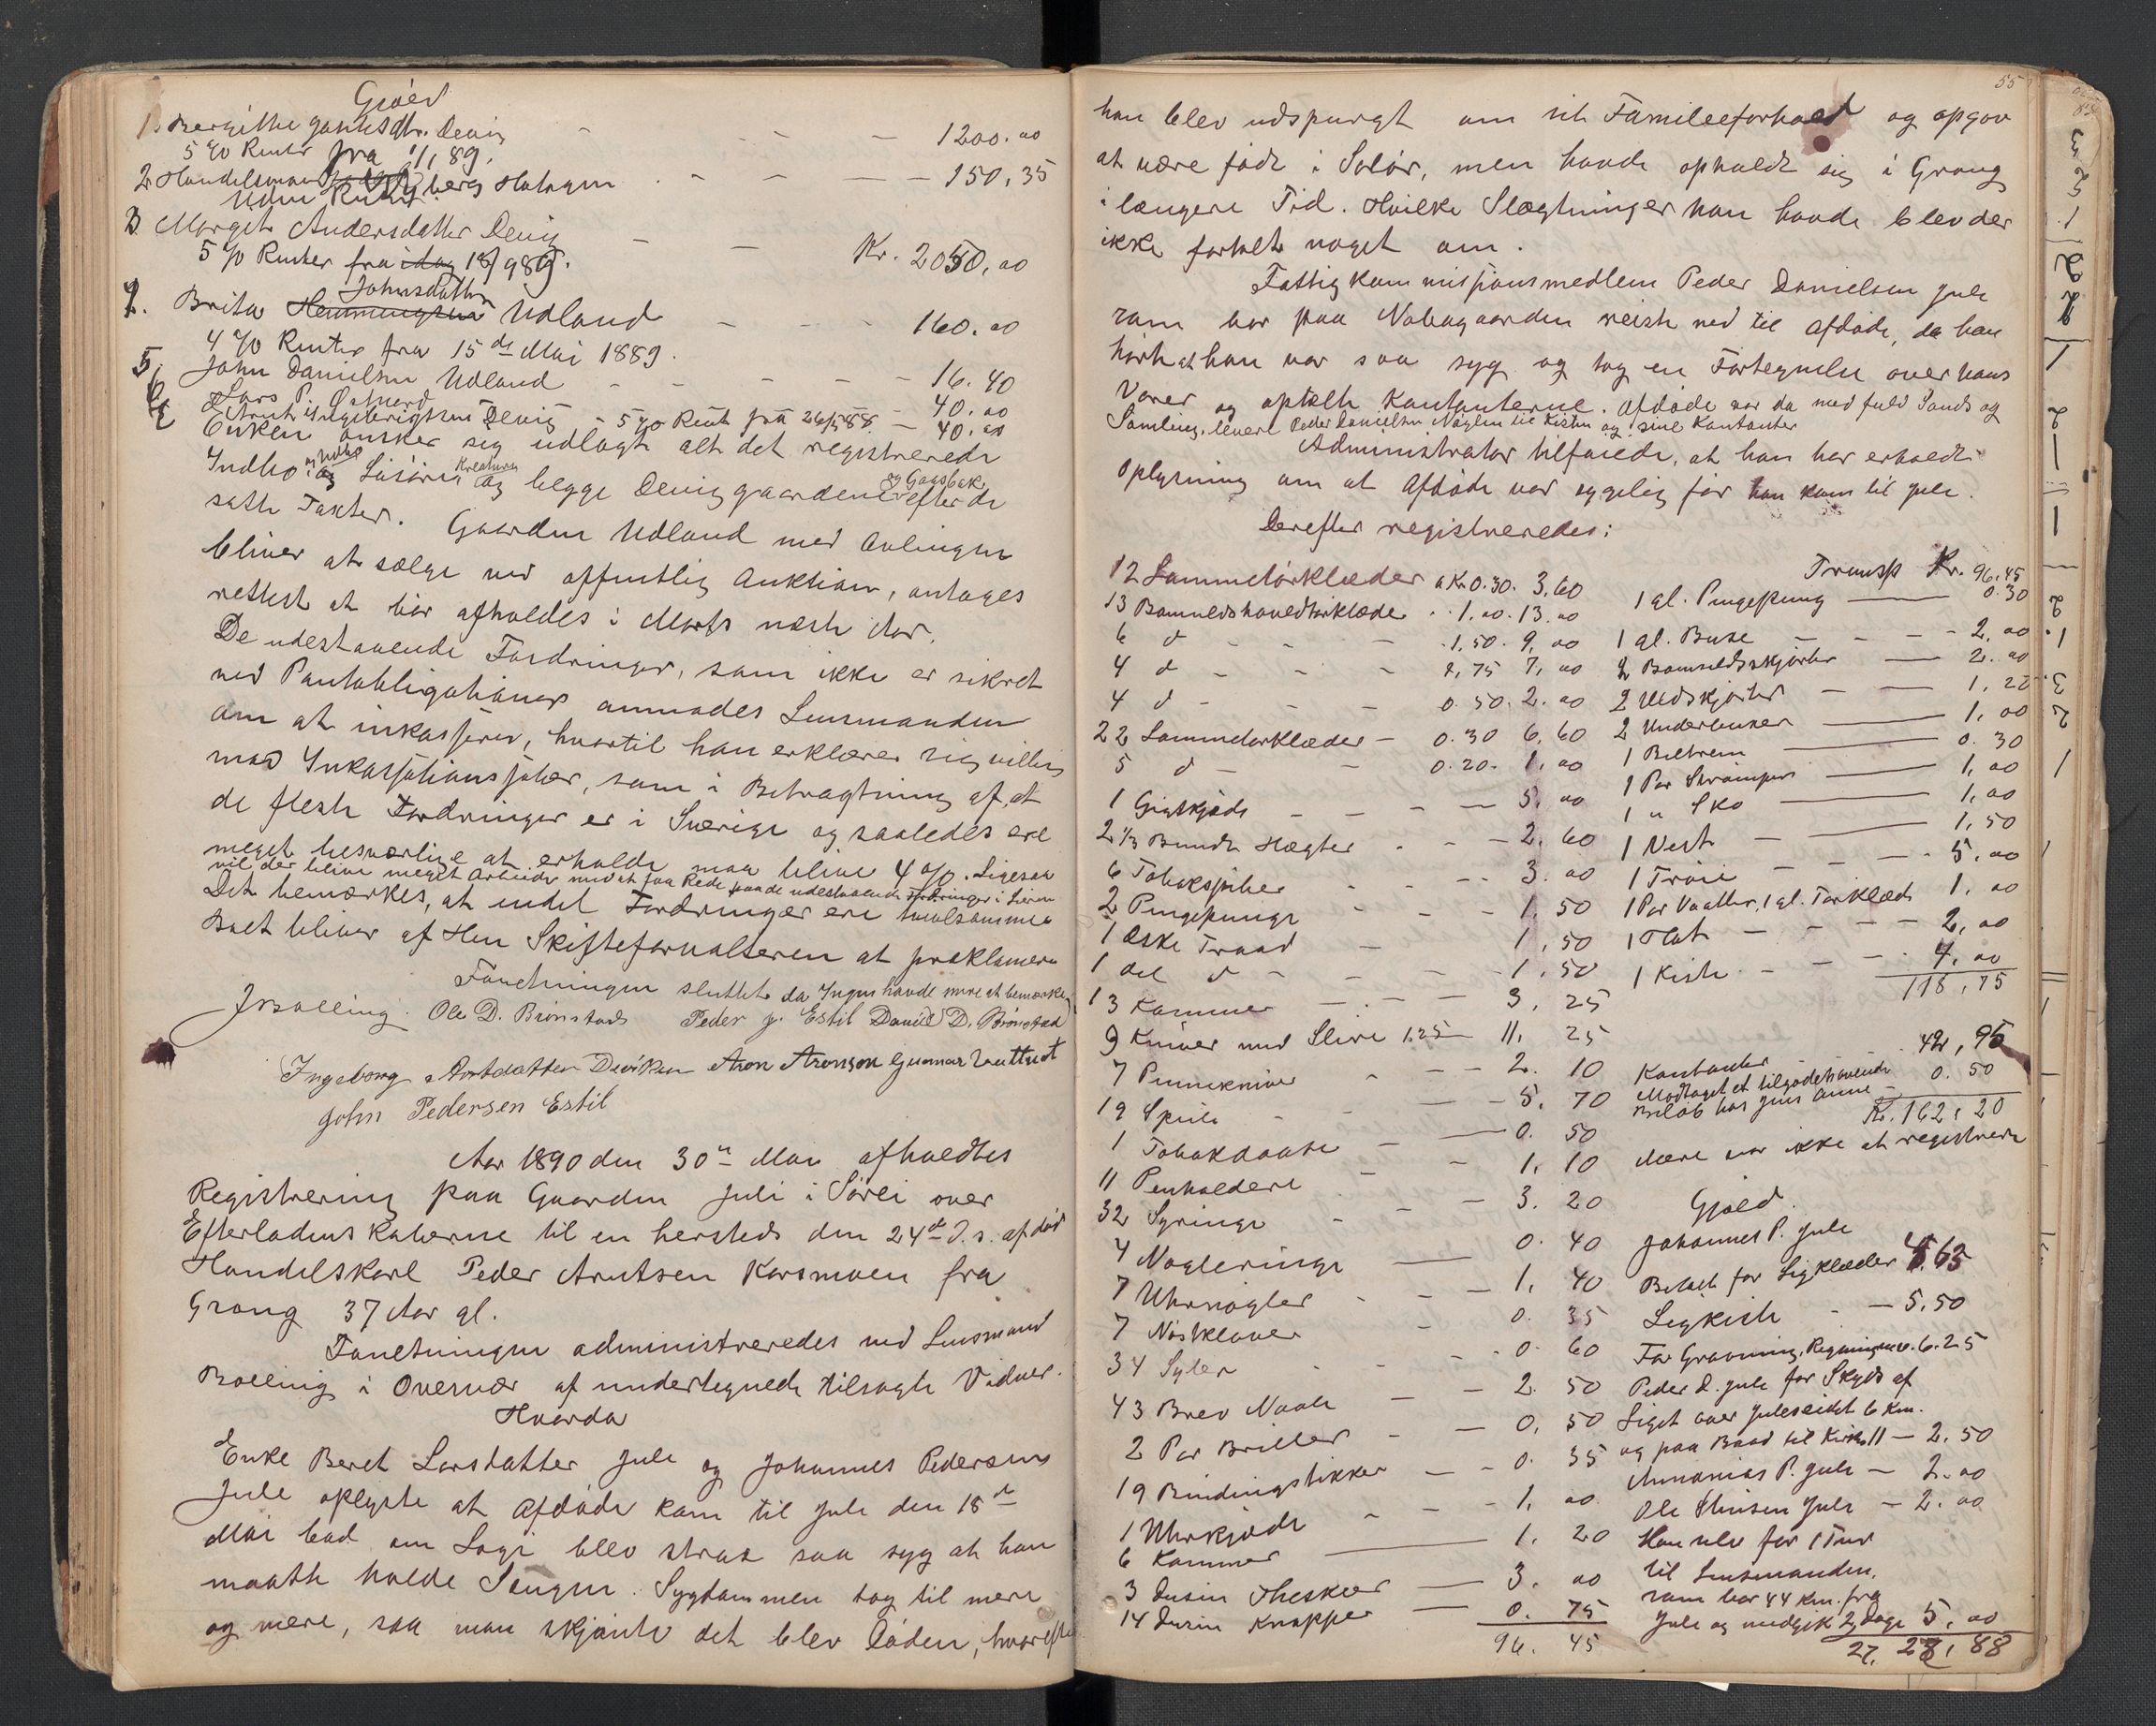 Gjæld
1. Bergithe Jonkesdtr. Devig - - - 1200.00
5 % Renter fra 1/1 89.
2 Handelsmand Nyberg Hotagen - - - 150,35
Uden Renter
3 Margit Andersdatter Devig - - Kr. 2050,00
5 % Renter fra idag 18/9 89.
Johnsdatter
4. Brita Henningsen Udland - - - 160.00
4 % Renter fra 15de Mai 1889.
5, John Danielsen Udland - - - - 16.40
6 Lars P. Østnerd - 40.00
7 Arnt Ingebrigtsen Devig - 5 % Rent fra 26/5 88 - 40.00
Enken ønsker sig udlagt alt det registrerede
Indbo og Løsøre, Kreaturer og begge Deviggaardene og Gaasbak efter de
satte Taxter. Gaarden Udland med Avlingen
bliver at sælge ved offentlig Auktion, antages
rettest at bør afholdes i Marts næste Aar.
De udestaaende Fordringer, som ikke er sikret
ved Pantobligationer anmodes Lensmanden
om at inkassere, hvortil han erklærer sig villig
mod Inkassationssalær, som i Betragtning af, at
de fleste Fordringer er i Sverige og saaledes ere
meget besværlige at erholde maa blive 4 %. Ligesaa
vil der blive meget Arbeide med at faa Rede paa de udestaaende Fordringer i Lieren
Det bemærkes, at endel Fordringer ere tvivlsomme
Boet bliver af Herr Skifteforvalteren at proklamere
Forretningen sluttet da Ingen havde mere at bemærke
J Bolling. Ole D. Brønstad Peder J. Estil Daniel D. Brønstad
Ingeborg Arntdatter Deviken Aron Aronson Gunnar
John Pedersen Estil
Aar 1890 den 30te Mai afholdtes
Registrering paa Gaarden Jule i Sørli over
Efterladenskaberne til en hersteds den 24de d. s. afdød
Handelskarl Peder Arntsen Korsmoen fra
Grong 37 Aar gl.
Forretningen administreredes ved Lensmand
Bolling i Overvær af undertegnede tilsagte Vidner.
Hvorda
Enke Beret Larsdatter Jule og Johannes Pedersen
Jule oplyste at Afdøde kom til Jule den 18de
Mai bad om Logi blev strax saa syg at han
maatte holde Sengen. Sygdommen tog til mere
og mere, saa man skjønte det blev Døden, hvorefter
55
han blev udspurgt om sit Familieforhold og opgav
at være født i Solør, men havde opholdt sig i Grong
i længere Tid. Hvilke Slægtninger han havde blev der
ikke fortalt noget om.
Fattigkommissionsmedlem Peder Danielsen Jule
som bor paa Nabogaarden reiste ned til Afdøde, da han
hørte at han var saa syg og tog en Fortegnelse over hans
Varer og optalte Kontanterne. Afdøde var da med fuld Sands og
Samling, leverte Peder Danielsen Nøglen til Kisten og sine Kontanter
Administrator tilføiede, at han har erholdt
Oplysning om at Afdøde var sygelig før han kom til Jule.
Derefter registreredes:
12 Lommetørklæder a Kr 0.30. 3,60
13 Bomuldshovedtørklæder - 1.00. 13.00
6 d - - - 1,50. 9,00
4 d - - - 1,75 7,00
4 d - - - 0.50. 2.00
22 Lommetørklæder - 0.30 6,60
5 d - - 0.20. 1,00
1 Gigtkjæde - - - 5,00
2 1/3 Bundt Hægter - - - 2.60
6 Tobakspiber - - - 3.00
2 Pengepunge - - - 1,50
1 Æske Traad - 1,50
1 del d - - - 1.50
13 Kammer - - - 3,25
9 Kniver med Slire 1.25 - 11.25
7 Penneknive - - - 2.10
19 Speile - - - 5.70
1 Tobakdaase - - 0.50
11 Penholdere - - 1,10
32 Syringe - - - 3.20
4 Nøgleringe - 0.40
7 Uhrnøgler - - - 1,40
7 Nøstkloner - 0.35
34 Syler - - - 0.60
43 Brev Naale - - 2.50
2 Par Briller - - 0,50
19 Bindingstikker - - 0.35
1 Uhrkjæde - - - 1,00
6 Kammer - 1.20
3 Dusin Theskeer - 3.00
14 Dusin Knapper - 0.75
96.45
Transp Kr. 96,45
1 gl. Pengepung - 0.30
1 gl. Buxe - - - 2,00
2 Bomuldsskjorter - 2.00
2 Uldskjorter - - 1,25
2 Underbuxer - 1,00
1 Belterem - 0.30
1 Par Strømper - 1,00
1 " Sko - 1,00
1 Vest - - 1,50
1 Trøie - - - 5.00
1 Par Vaatter, 1 gl. Tørklæde 1.00
1 Hat - - - 2,00
1 Kiste - - - 4.00
118,75
Kontanter 42,95
Modtaget et tilgodehavende
Beløb hos Jens Anne - 0.50
Kr. 162,20
Mere var ikke at registrere
Gjæld.
Johannes P. Jule
Betalt for Ligklæder 4.63
Ligkiste - - 5.50
For Gravning, Ringning m.v. 6.25
Peder D. Jule for Skyds af
Liget over Juleseidet 6 Km.
og paa Baad til Kirke 11 - 2.50
Annanias P. Jule - 2.00
Ole Hansen Jule - 2.00
Han selv for 1 Tur
til Lensmanden,
som bor 44 Km. fra
Jule og medgik 2 Dage 5.00
27. 28,88